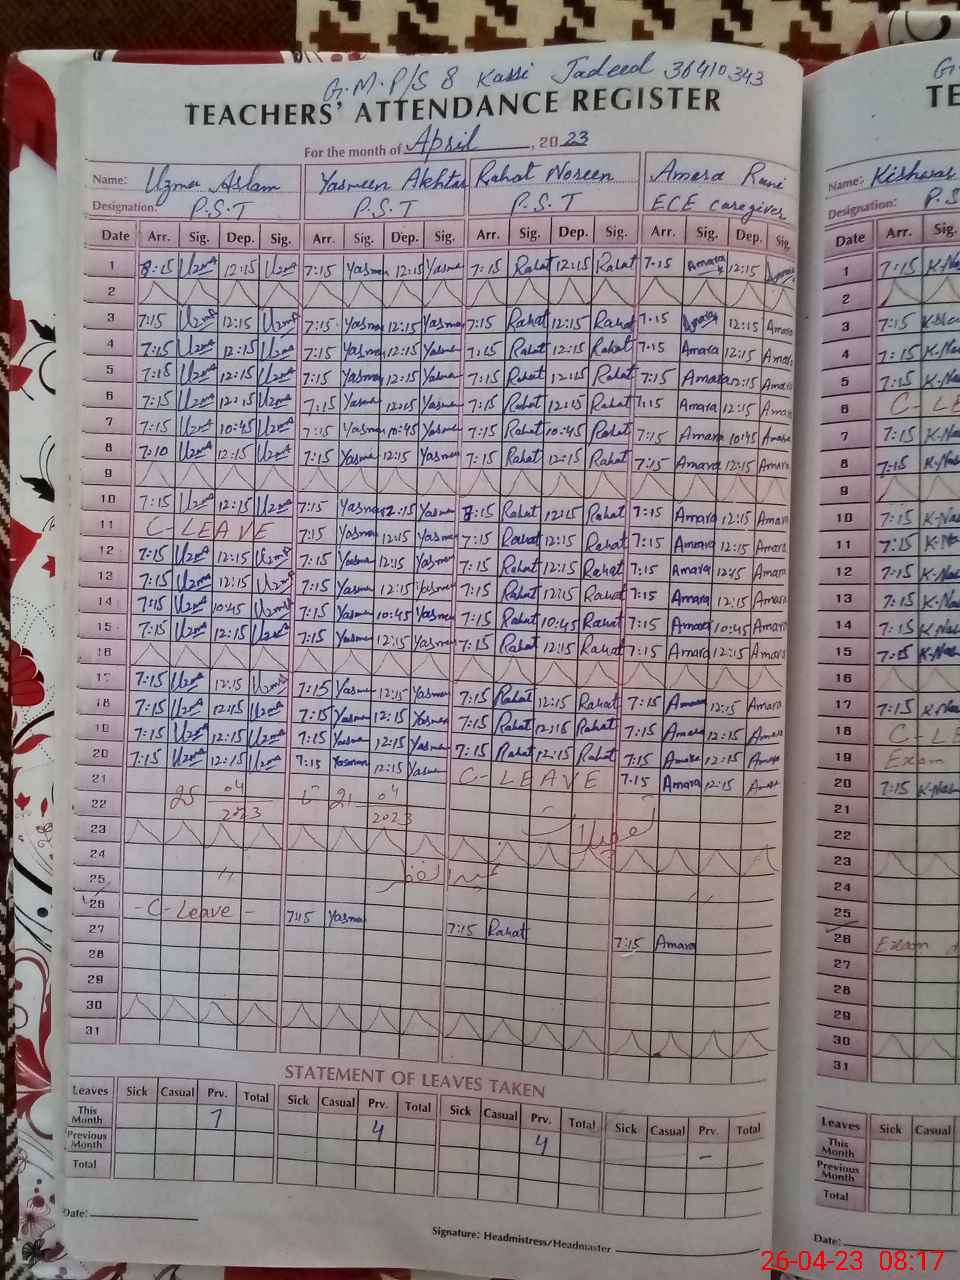 G.M.P/S 8 Kassi Jadeed 36410343
TEACHERS' ATTENDANCE REGISTER
For the month of April, 2023
Name: Uzma Aslam Yasmeen Akhtar Rahat Noreen Amara Rani
Designation: P.S.T P.S.T P.S.T ECE caregiver
Date Arr. Sig. Dep. Sig. Arr. Sig. Dep. Sig. Arr. Sig. Dep. Sig. Arr. Sig. Dep. Sig.
1 8:15 Uzma 12:15 Uzma 7:15 Yasme 12:15 Yasme 7:15 Rahat 12:15 Rahat 7:15 Amara 12:15
2
3 7:15 Uzma 12:15 Uzma 7:15 Yasme 12:15 Yasme 7:15 Rahat 12:15 Rahat 7:15 Amara 12:15 Amara
4 7:15 Uzma 12:15 Uzma 7:15 Yasme 12:15 Yasme 7:15 Rahat 12:15 Rahat 7:15 Amara 12:15 Amara
5 7:15 Uzma 12:15 Uzma 7:15 Yasme 12:15 Yasme 7:15 Rahat 12:15 Rahat 7:15 Amara 12:15 Amara
6 7:15 Uzma 12:15 Uzma 7:15 Yasme 12:15 Yasme 7:15 Rahat 12:15 Rahat 7:15 Amara 12:15 Amara
7 7:15 Uzma 10:45 Uzma 7:15 Yasme 10:45 Yasme 7:15 Rahat 10:45 Rahat 7:15 Amara 10:45 Amara
8 7:10 Uzma 12:15 Uzma 7:15 Yasme 12:15 Yasme 7:15 Rahat 12:15 Rahat 7:15 Amara 12:15 Amara
9
10 7:15 Uzma 12:15 Uzma 7:15 Yasme 12:15 Yasme 7:15 Rahat 12:15 Rahat 7:15 Amara 12:15 Amara
11 C-LEAVE 7:15 Yasme 12:15 Yasme 7:15 Rahat 12:15 Rahat 7:15 Amara 12:15 Amara
12 7:15 Uzma 12:15 Uzma 7:15 Yasme 12:15 Yasme 7:15 Rahat 12:15 Rahat 7:15 Amara 12:15 Amara
13 7:15 Uzma 12:15 Uzma 7:15 Yasme 12:15 Yasme 7:15 Rahat 12:15 Rahat 7:15 Amara 12:15 Amara
14 7:15 Uzma 10:45 Uzma 7:15 Yasme 10:45 Yasme 7:15 Rahat 10:45 Rahat 7:15 Amara 10:45 Amara
15 7:15 Uzma 12:15 Uzma 7:15 Yasme 12:15 Yasme 7:15 Rahat 12:15 Rahat 7:15 Amara 12:15 Amara
16
17 7:15 Uzma 12:15 Uzma 7:15 Yasme 12:15 Yasme 7:15 Rahat 12:15 Rahat 7:15 Amara 12:15 Amara
18 7:15 Uzma 12:15 Uzma 7:15 Yasme 12:15 Yasme 7:15 Rahat 12:15 Rahat 7:15 Amara 12:15 Amara
19 7:15 Uzma 12:15 Uzma 7:15 Yasme 12:15 Yasme 7:15 Rahat 12:15 Rahat 7:15 Amara 12:15 Amara
20 7:15 Uzma 12:15 Uzma 7:15 Yasmee 12:15 Yasme C-LEAVE 7:15 Amara 12:15 Amara
21
22 25 04/2023 تا 21 04/2023 تعطیلات
23
24
25 عیدالفطر
26 -C-Leave- 7:15 Yasme 7:15 Rahat 7:15 Amara
27
28
29
30
31
STATEMENT OF LEAVES TAKEN
Leaves Sick Casual Prv. Total Sick Casual Prv. Total Sick Casual Prv. Total Sick Casual Prv. Total
This Month 7 4 4 -
Previous Month
Total
Date:
Signature: Headmistress/Headmaster
G
TE
Name: Kishwar
Designation: P.S
Date Arr. Sig.
1 7:15 K-Na
2
3 7:15
4 7:15 K-Na
5 7:15 K-Na
6 C-LE
7 7:15 K-Na
8 7:15 K-Nas
9
10 7:15 K-Nas
11 7:15 K-Na
12 7:15 K-Nas
13 7:15 K-Nas
14 7:15 K-Nas
15 7:15 K-Nas
16
17 7:15 K-Na
18 C-LE
19 Exam
20 7:15 K-Nas
21
22
23
24
25
26 Exam
27
28
29
30
31
Leaves Sick Casual
This Month
Previous Month
Total
Date:
26-04-23 08:17